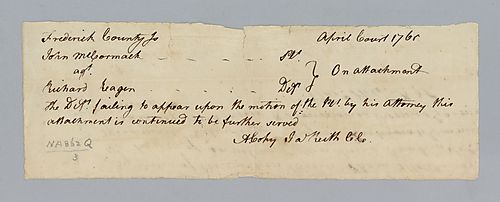 Frederick County Js April Court 1765
John McCormack Plt.
agt. } On attachment
Richard Eagen Deft
the Deft. failing to appear upon the motion of the Plt. by his Attorney this
attachment is continued to be further served
A Copy Ja Keith CCo.
NA862Q
3